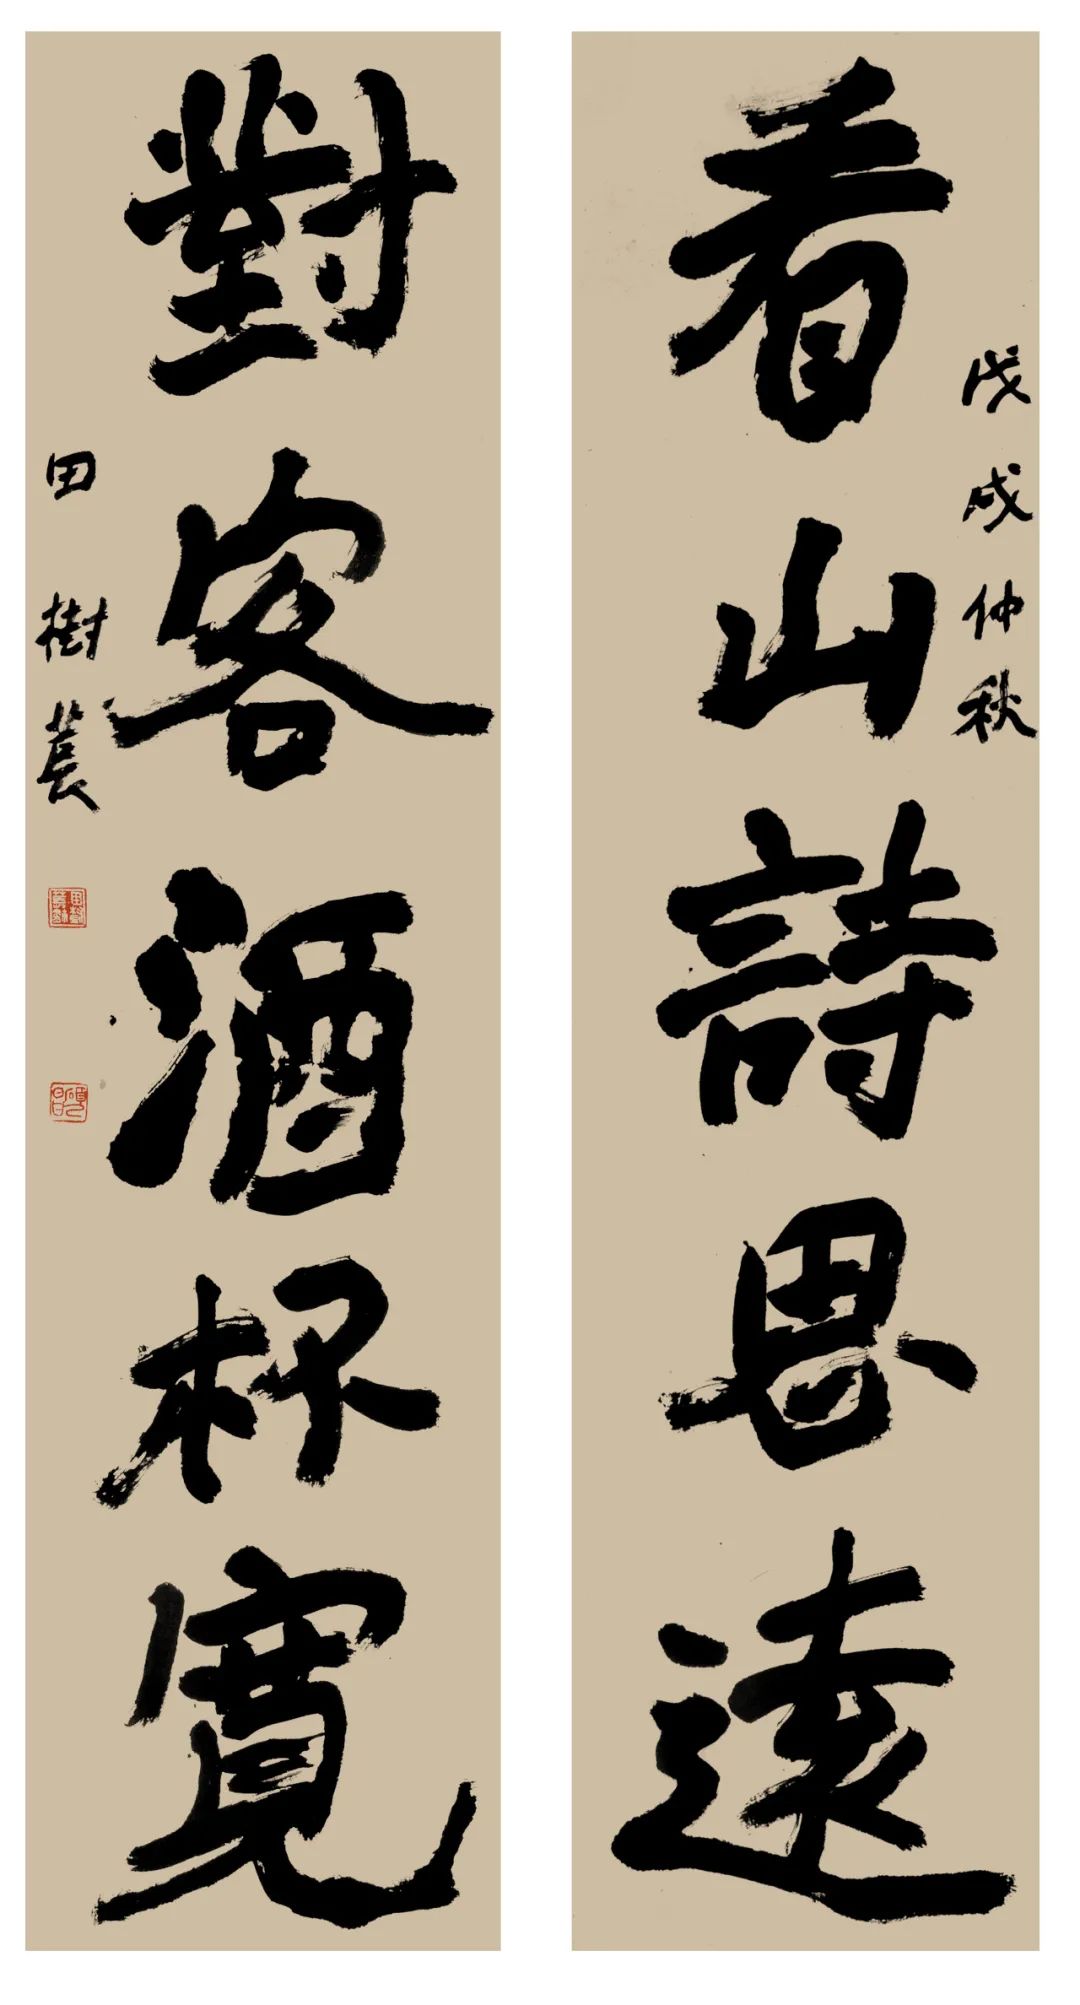 看山詩思遠
戊戌仲秋
對客酒杯寬
田樹萇